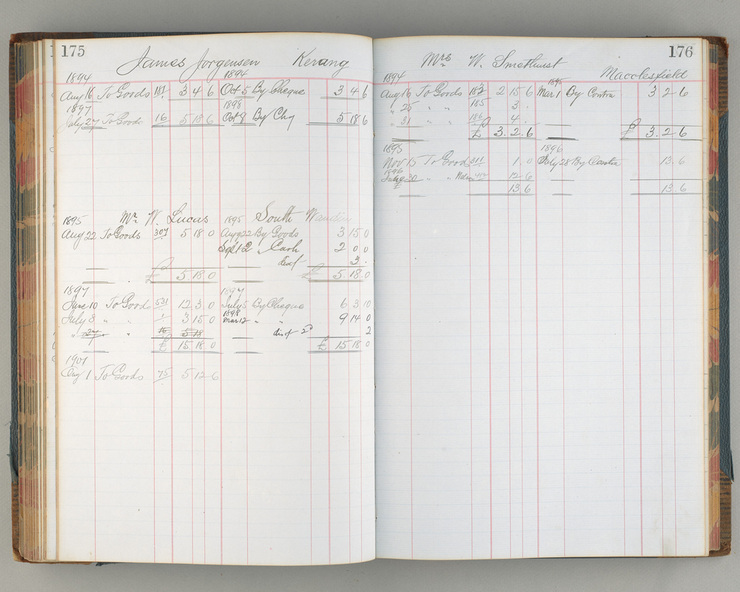 175
James Jorgensen Kerang
1894 1894
Aug 16 To Goods 181 3 4 6 Oct 5 By Cheque 3 4 6
1897 1898
July 27 To Goods 16 5 18 6 Oct 9 By Chq 5 18 6
1895 Mr W. Lucus 1895 South
Aug 22 To Goods 307 5 18 0 Aug 22 By Goods 3 15 0
Sept 2 " Cash 2 0 0
3 -
£ 5 18 0 £ 5 18 0
1897 1897
June 10 To Good 531 12 3 0 July 5 By Cheque 6 3 10
1898
July 3 " " 3 15 0 Mar 12 " " 9 14 0
" 27 " 2
£ 15 18 0 £ 15 18 0
1901
Aug 1 To Goods 75 5 12 6
176
Mrs W. Smethurst
Macclesfield
1894 1895
Aug 16 To Goods 182 2 15 6 Mar 1 By Contra 3 2 6
" 25 " " 185 3 -
" 31 " " 4 -
£ 3 . 2 . 6 £ 3 . 2 . 6
1895 1896
Nov 15 To Goods 1 . 0 July 28 By Contra 13 . 6
1896
30 " " 12 . 6
13 6 13 . 6